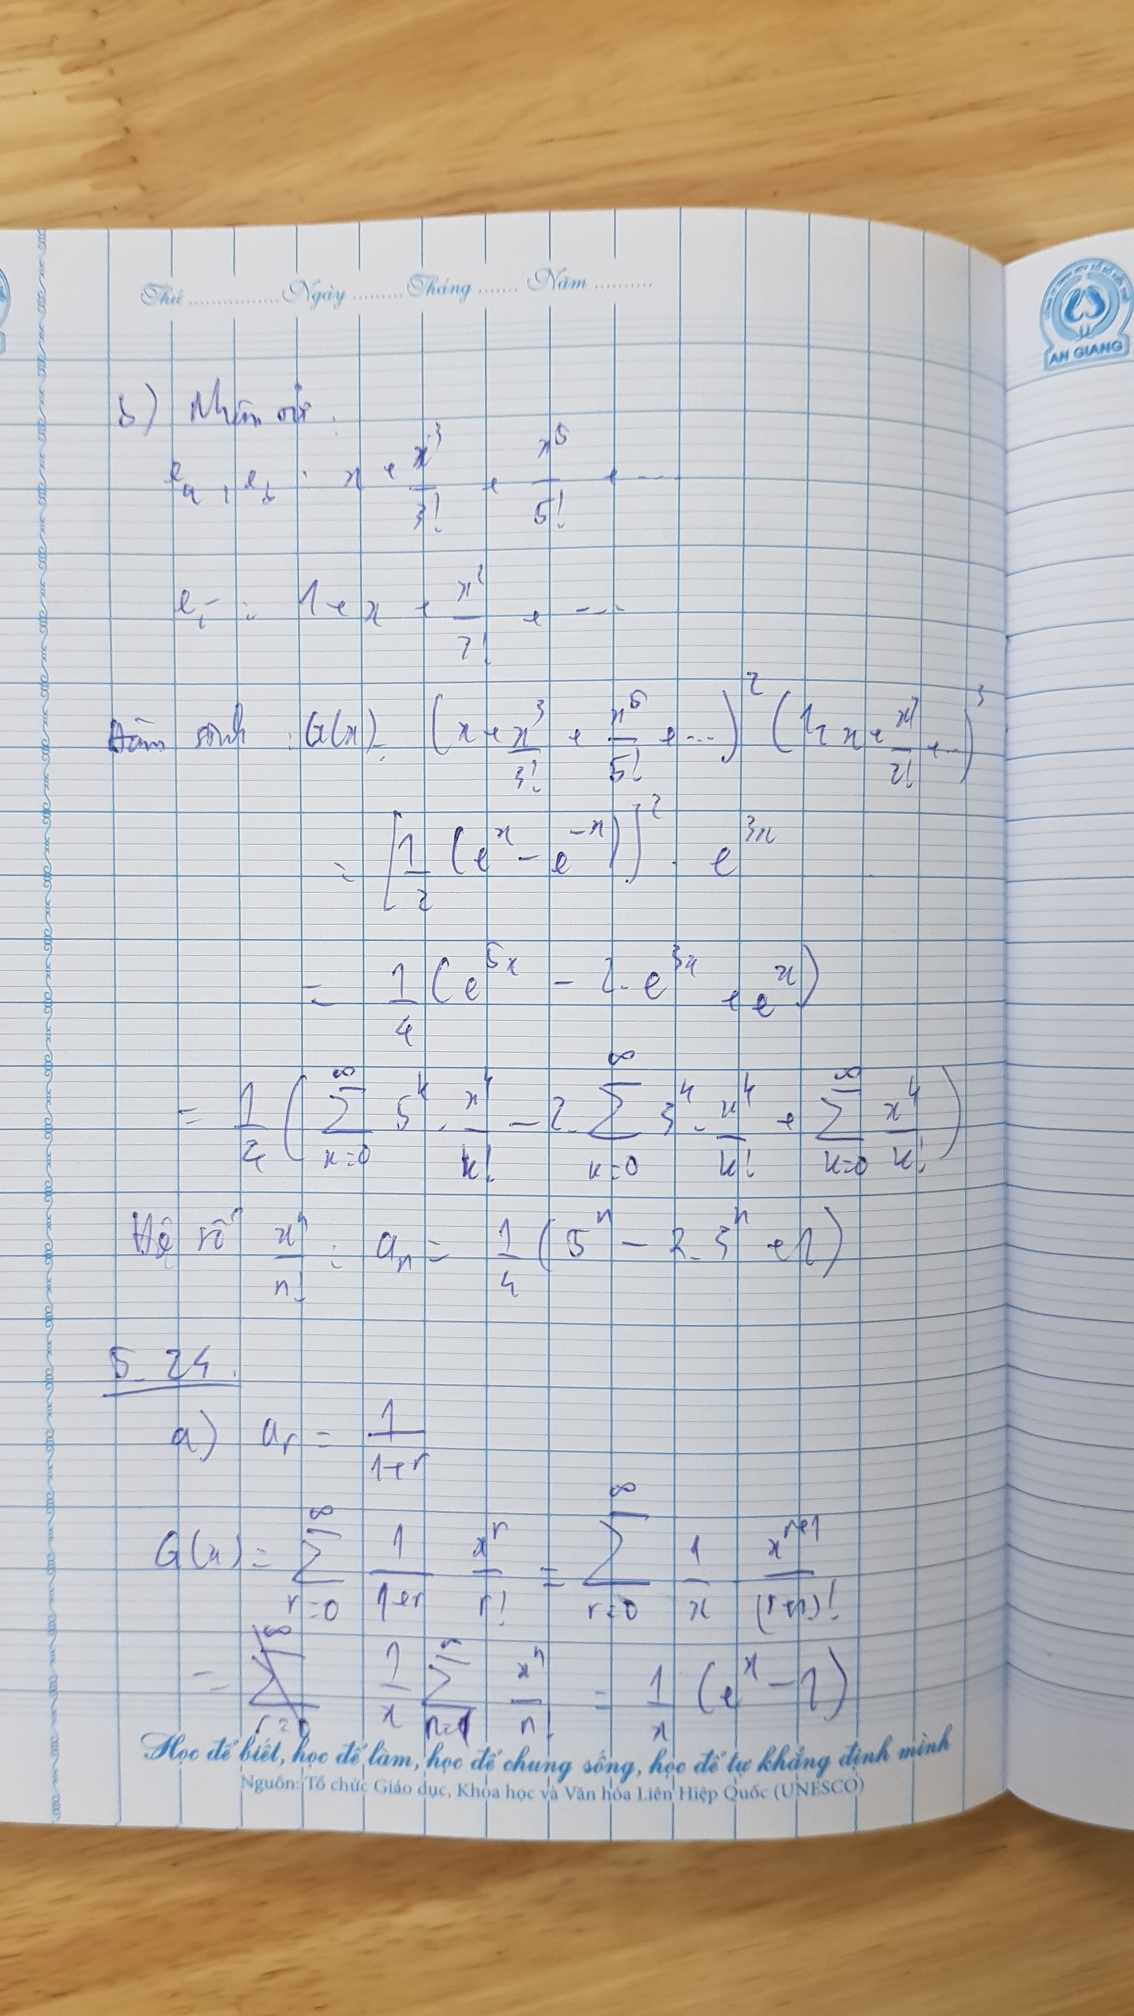 Thứ ................ Ngày ......... Tháng ....... Năm ..........
AN GIANG
b) Nhân tử:
e_a, e_b : x + x^3/3! + x^5/5! + ...
e_i = 1 + x + x^2/2! + ...
Hàm sinh : G(x) = (x + x^3/3! + x^5/5! + ...)^2 (1 + x + x^2/2! + ...)^3
= [1/2 (e^x - e^-x)]^2 . e^3x
= 1/4 (e^5x - 2.e^3x + e^x)
= 1/4 (∑_{k=0}^∞ 5^k . x^k/k! - 2.∑_{k=0}^∞ 3^k . x^k/k! + ∑_{k=0}^∞ x^k/k!)
Hệ số x^n/n! : a_n = 1/4 (5^n - 2.3^n + 1)
5.24.
a) a_r = 1/(1+r)
G(x) = ∑_{r=0}^∞ 1/(1+r) x^r/r! = ∑_{r=0}^∞ 1/x x^{r+1}/(r+1)!
= 1/x ∑_{n=1} x^n/n! = 1/x (e^x - 1)
Học để biết, học để làm, học để chung sống, học để tự khẳng định mình
Nguồn: Tổ chức Giáo dục, Khoa học và Văn hóa Liên Hiệp Quốc (UNESCO)